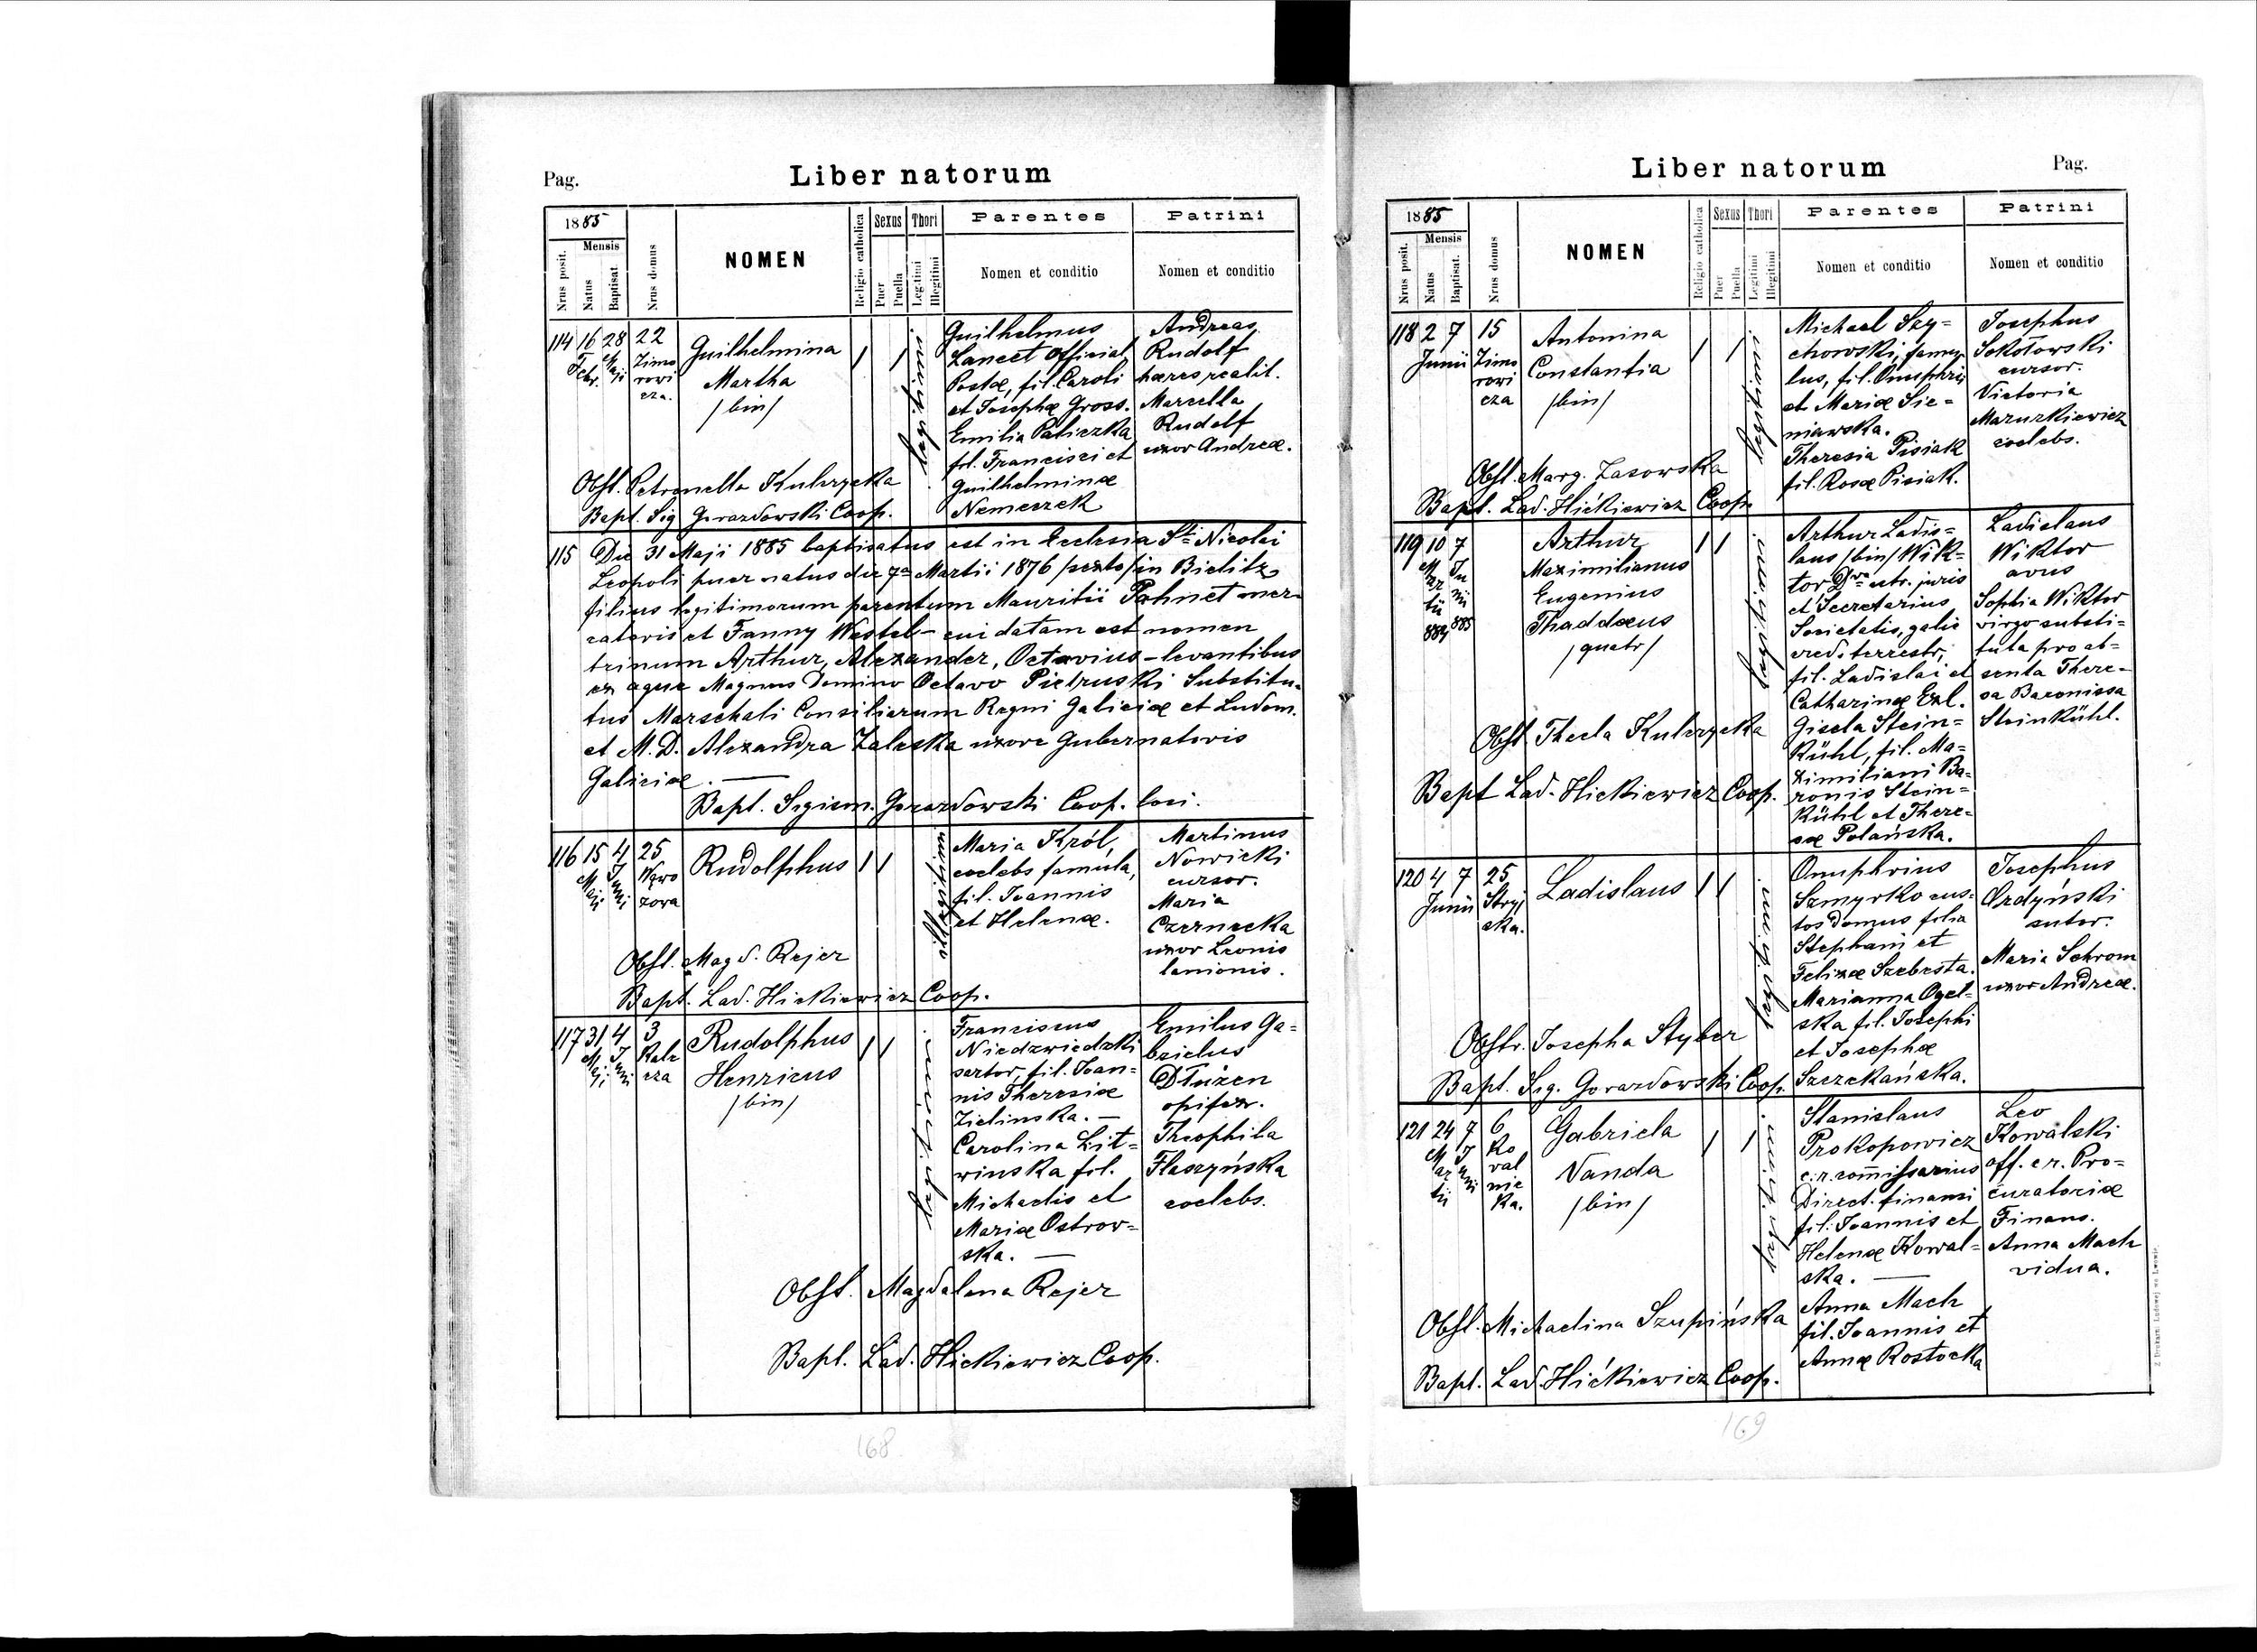 Pag.
Liber natorum
1885
Mensis
Nrus posit.
Natus
Baptisat.
Nrus domus
NOMEN
Religio catholica
Sexus
Puer
Puella
Thori
Legitimi
Illegitimi
Parentes
Nomen et conditio
Patrini
Nomen et conditio
114 16 28 22
Febr. Maji Zimo
rowi
cza.
Guilhelmina
Martha
/bin/
Guilhelmus
Lancet official
Postæ, fil. Caroli
et Josephæ Gross.
Emilia Paliczka
fil. Francisci et
Guilhelminæ
Nemeczek
Andreas
Rudolf
hæres realit.
Marcella
Rudolf
uxor Andreæ.
Obst. Petronella Kulczycka
Bapt. Sig Gorazdowski Coop.
115 Die 31 Maji 1885 baptisatus est in Ecclesia St. Nicolai
Leopoli puer natus die 7a Martii 1876 /sexto/ in Bielitz
filius legitimorum parentum Mauritii Pahnet mer-
catoris et Fanny Westel - cui datam est nomen
trinum Arthur, Alexander, Octavius - levantibus
ex aqua Magnus Domino Octavo Pietruski Substitu-
tus Marschali Consiliarum Regni Galiciæ et Ludom.
et M.D. Alexandra Zaleska uxore Gubernatoris
Galiciæ.
Bapt. Sigism. Gorazdowski Coop. loci.
116 15 4 25
Maji Juni Wąwo
zowa
Rudolphus
illegitimi
Maria Król,
coelebs famula,
fil. Joannis
et Helenæ.
Martinus
Nowicki
cursor.
Maria
Czernecka
uxor Leonis
lanionis.
Obst. Magd. Rejer
Bapt. Lad. Hickiewicz Coop.
117 31 4 3
Maji Juni Kale
cza
Rudolphus
Henricus
/bin/
Franciscus
Niedzwiedzki
sartor, fil. Joan=
nis Theresiæ
Zielinska. -
Carolina Lit=
winska fil.
Michaelis et
Mariæ Ostrow=
ska. -
Emilus Ga=
brielus
Dłużen
opifex.
Theophila
Flaszyńska
coelebs.
Obst. Magdalena Rejer
Bapt. Lad. Hickiewicz Coop.
168
Liber natorum
Pag.
1885
Mensis
Nrus posit.
Natus
Baptisat.
Nrus domus
NOMEN
Religio catholica
Sexus
Puer
Puella
Thori
Legitimi
Illegitimi
Parentes
Nomen et conditio
Patrini
Nomen et conditio
118 2 7 15
Junii Zimo
rowi
cza
Antonina
Constantia
/bin/
Michael Szy=
chowski, famu
lus, fil. Onuphrii
et Mariæ Sie=
niawska.
Theresia Pisiak
fil. Rosæ Pisiak.
Josephus
Sokołowski
cursor.
Victoria
Mazurkiewicz
coelebs.
Obst. Marg. Zasowska
Bapt. Lad. Hickiewicz Coop.
119 10 7
Mar Ju
tii ni
884 885
Arthur
Maximilianus
Eugenius
Thaddæus
/quatr/
Arthur Ladis=
laus /bin/ Wik=
tor Dr. utr. juris
et Secretarius
Societatis, galic
cred. terrestr,
fil. Ladislai et
Catharinæ Exl.
Gisela Stein=
Kühl, fil. Ma=
ximiliani Ba=
ronis Stein=
Kühl et There=
sæ Polańska.
Ladislaus
Wiktor
avus
Sophia Wiktor
virgo substi=
tuta pro ab=
senta There=
sa Baronissa
Steinkühl.
Obst Thecla Kulczycka
Bapt Lad. Hickiewicz Coop.
120 4 7 25
Junii Stryj
ska.
Ladislaus
Onuphrius
Szmyrko cus=
tos domus filia
Stephani et
Felixæ Szebesta.
Marianna Ogel=
ska fil. Josephi
et Josephæ
Szczekańska.
Josephus
Ordyński
sutor.
Maria Schrom
uxor Andreæ.
Obstr. Josepha Styber
Bapt. Sig. Gorazdowski Coop.
121 24 7 6
Mar Ju Ko
tii nii val
nic
ka.
Gabriela
Vanda
/bin/
Stanislaus
Prokopowicz
c.r. comissarius
Direct. finansi
fil. Joannis et
Helenæ Kowal=
ska.
Anna Mach
fil. Joannis et
Annæ Rostocka
Leo
Kowalski
off. c r. Pro=
curatoriæ
Finans.
Anna Mach
vidua.
Obst. Michaelina Szupińska
Bapt. Lad. Hickiewicz Coop.
Z Drukarni Ludowej we Lwowie.
169